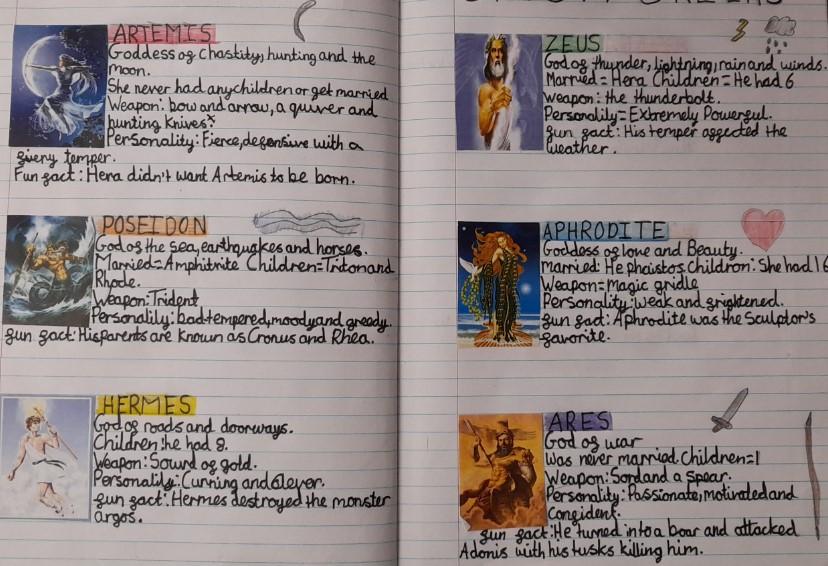 ARTEMIS
Goddess of chastity, hunting and the
moon.
She never had any children or get married
Weapon: bow and arrow, a quiver and
hunting knives
Personality: Fierce, defensive with a
fiery temper.
Fun fact: Hera didn't want Artemis to be born.
POSEIDON
God of the sea, earthquakes and horses.
Married=Amphitrite Children=Triton and
Rhode.
Weapon: Trident
Personality: bad-tempered, moody and greedy.
fun fact: His parents are known as Cronus and Rhea.
HERMES
God of roads and doorways.
Children: he had 8.
Weapon: Sourd of gold.
Personality: Cunning and Clever.
fun fact: Hermes destroyed the monster
argos.
ZEUS
God of thunder, lightning, rain and winds.
Married= Hera Children= He had 6
Weapon: the thunderbolt.
Personality= Extremely Powerful.
fun fact: His temper affected the
weather.
APHRODITE
Goddess of love and Beauty.
Married: Hephaistos Children: She had 16
Weapon= Magic gridle
Personality: weak and frightened.
fun fact: Aphrodite was the Sculptor's
favorite.
ARES
God of war
Was never married. Children=1
Weapon: Sord and a spear.
Personality: Passionate, motivated and
Confident.
fun fact: He turned into a boar and attacked
Adonis with his tusks killing him.